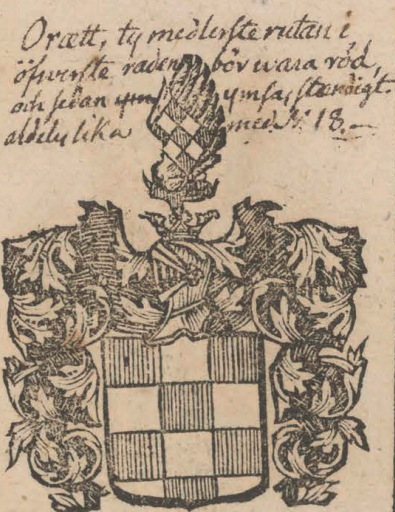 Orætt, ty medlerste rutan i
öfwerste raden bör wara röd,
och sedan ymsa, stændigt.
aldels lika med N. 18.